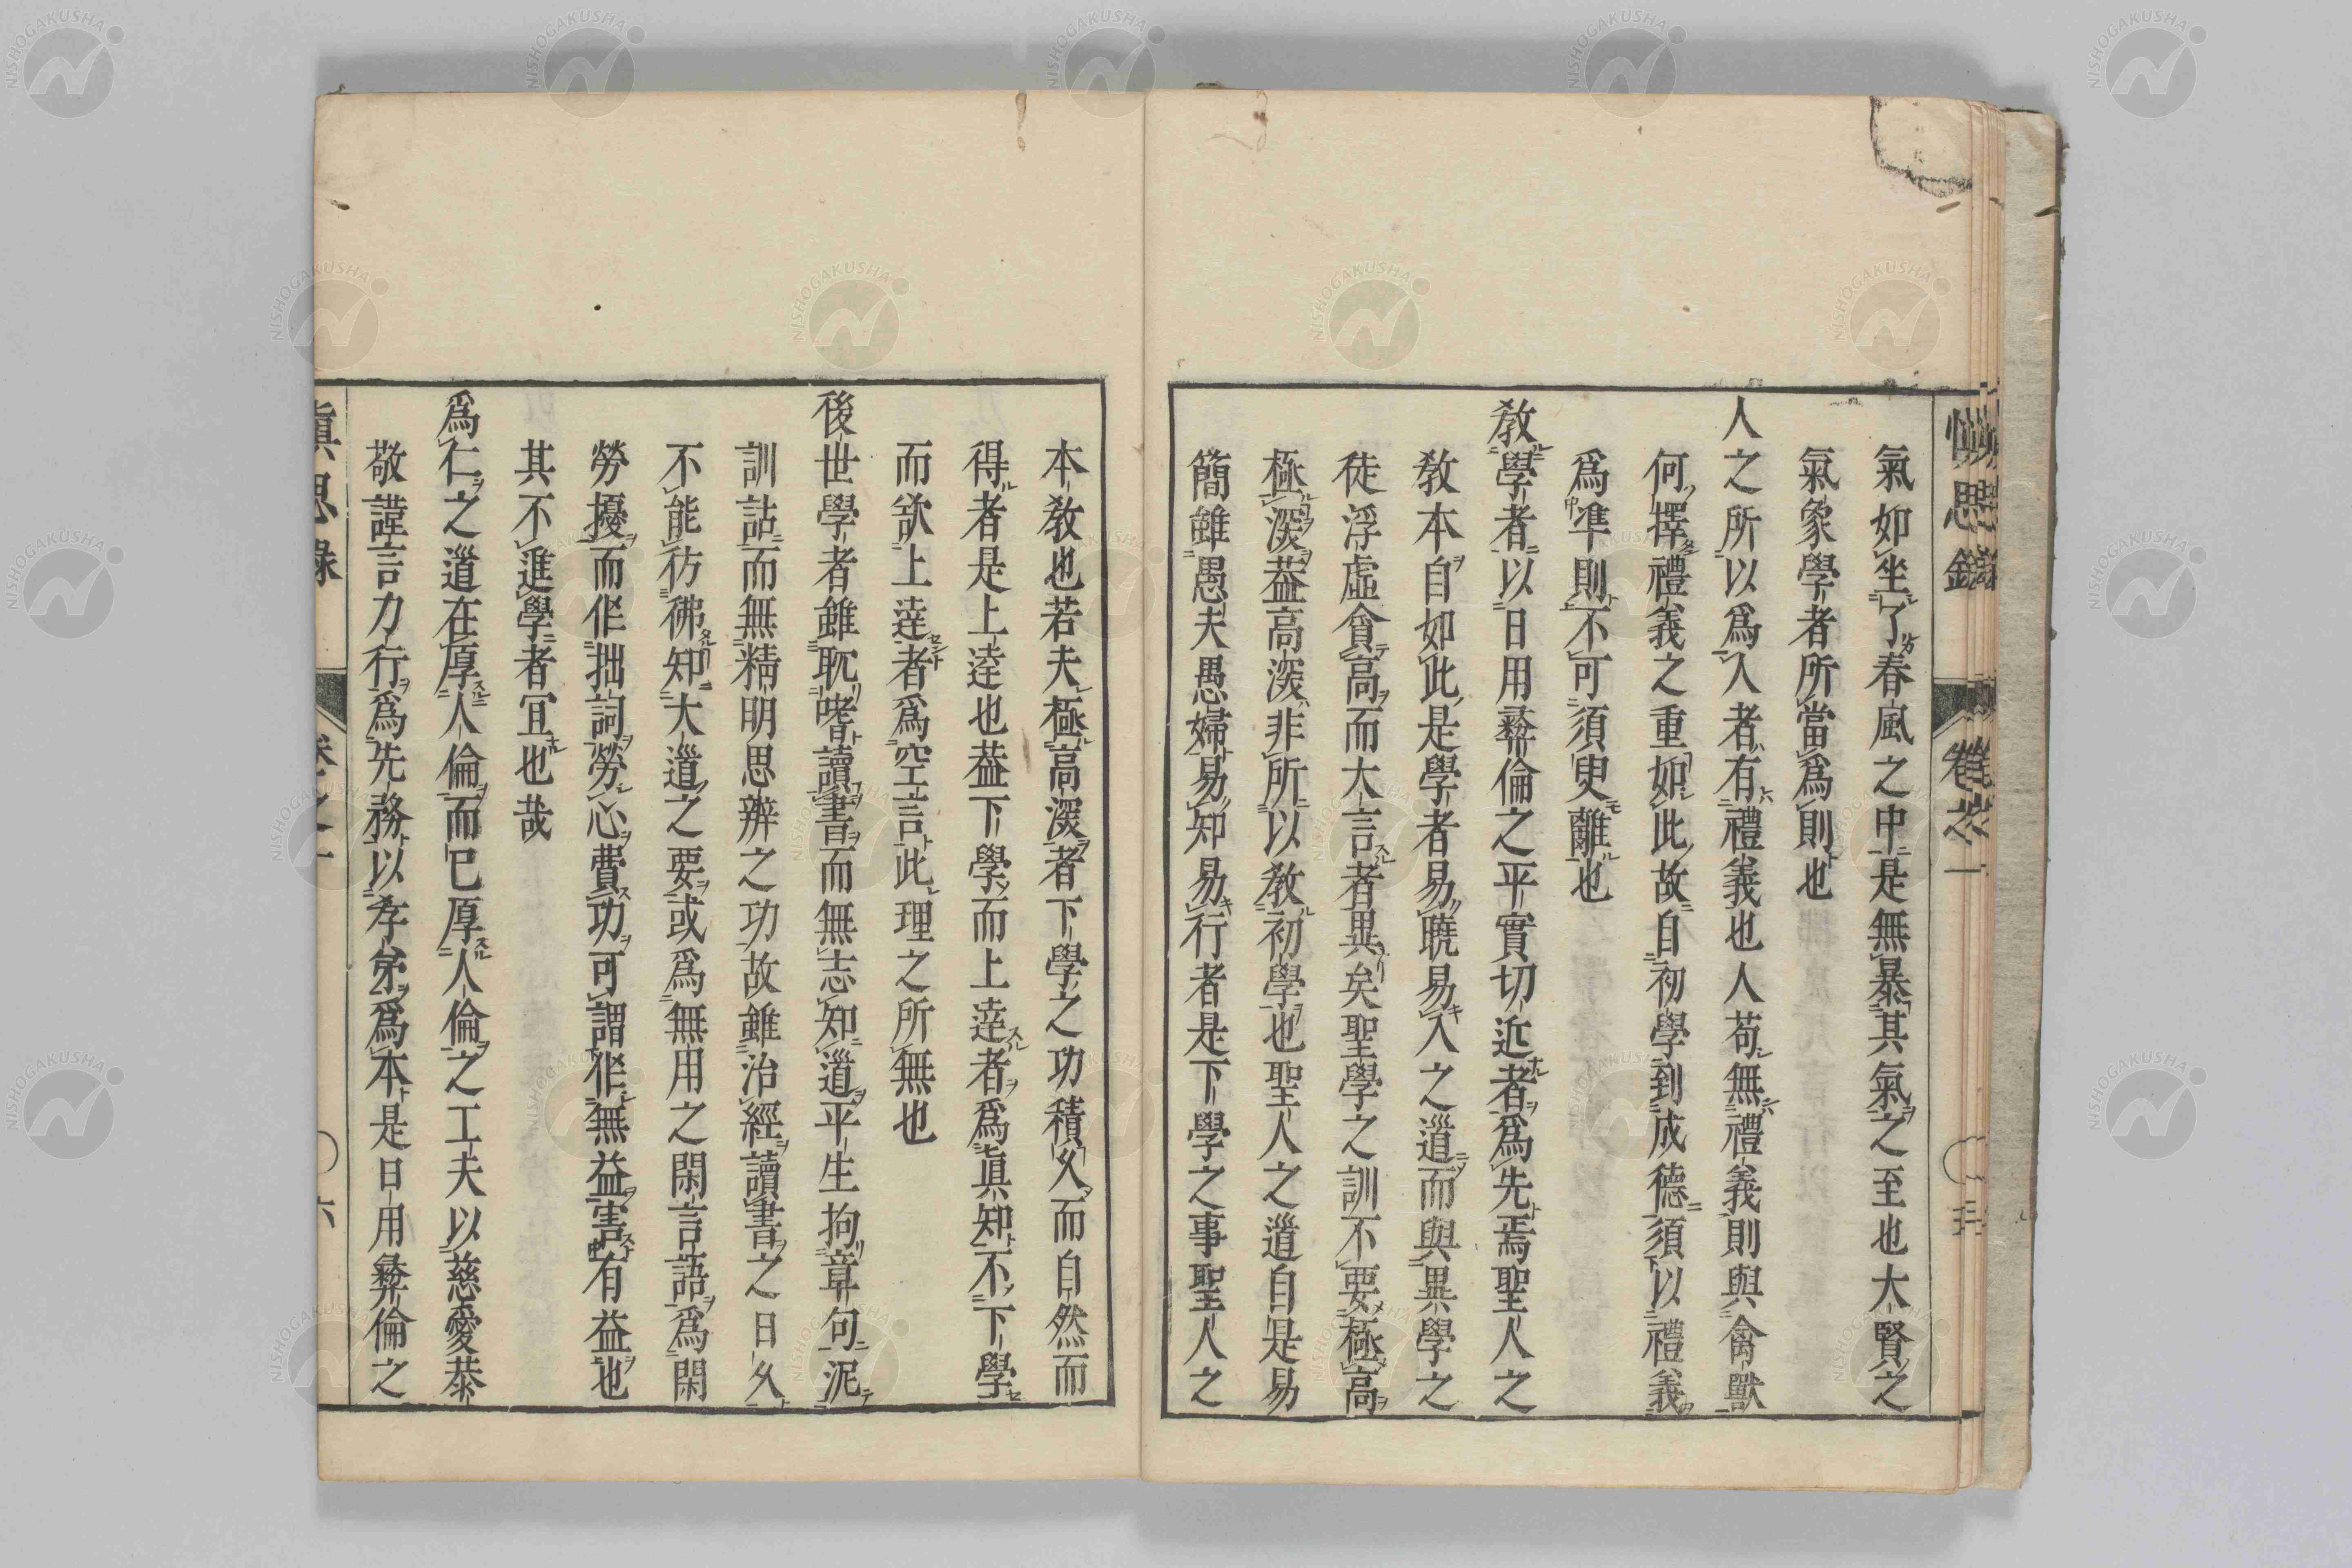 愼思錄 卷之一
氣如坐了春風之中是無暴其氣之至也大賢之
氣象學者所當爲則也
人之所以爲人者有禮義也人苟無禮義則與禽獸
何擇禮義之重如此故自初學到成德須以禮義
爲準則不可須臾離也
敎學者以日用彝倫之平實切近者爲先焉聖人之
敎本自如此是學者易曉易入之道而與異學之
徒浮虛貪高而大言者異矣聖學之訓不要極高
極深蓋高深非所以敎初學也聖人之道自是易
簡雖愚夫愚婦易知易行者是下學之事聖人之
本敎也若夫極高深者下學之功積久而自然而
得者是上達也蓋下學而上達者爲眞知不下學
而欲上達者爲空言此理之所無也
後世學者雖耽嗜讀書而無志知道平生拘章句泥
訓詁而無精明思辨之功故雖治經讀書之日久
不能彷彿知大道之要或爲無用之閑言語爲閑
勞擾而作拙詞勞心費功可謂作無益害有益也
其不進學者宜也哉
爲仁之道在厚人倫而已厚人倫之工夫以慈愛恭
敬謹言力行爲先務以孝弟爲本是日用彝倫之
愼思錄 卷之一 六
NISHOGAKUSHA